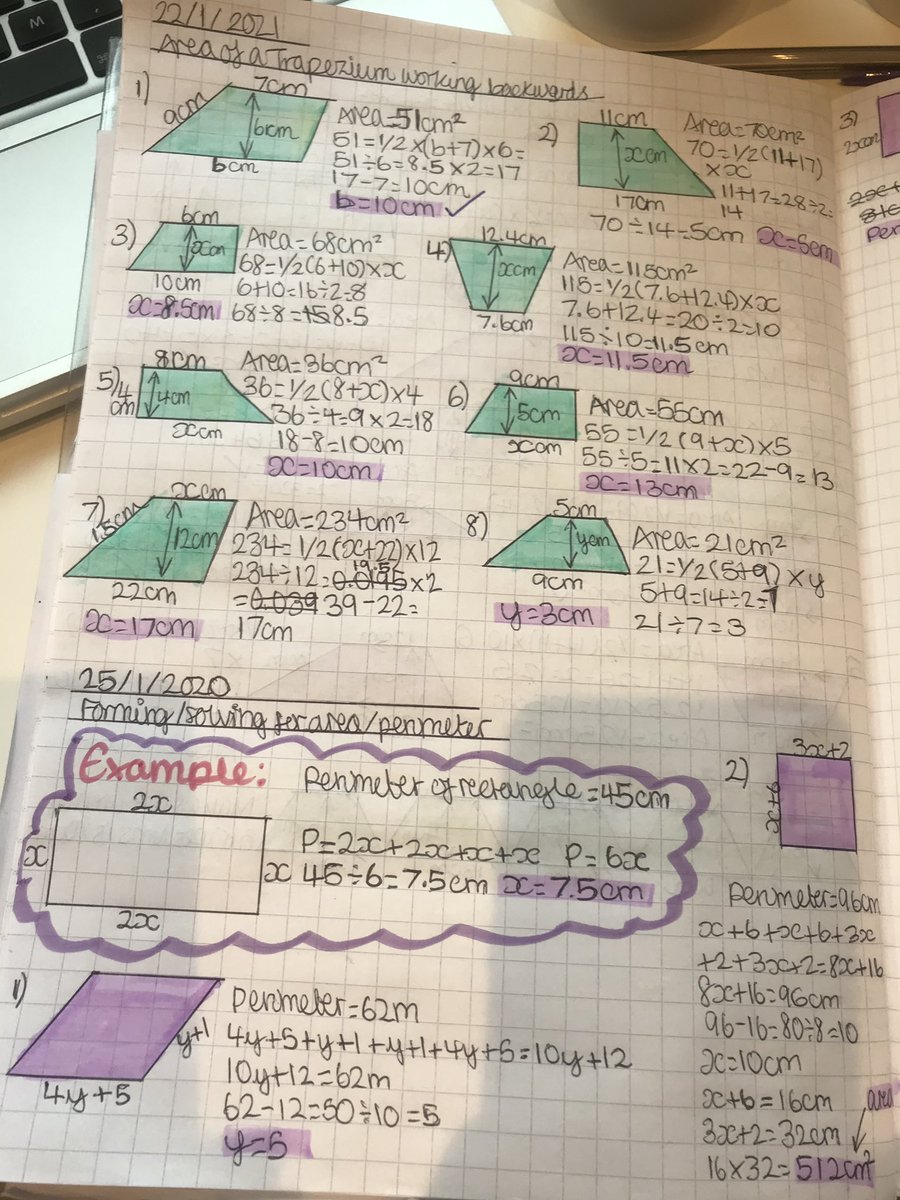 M
22/1/2021
Area of a Trapezium working backwards
1)
7cm
9cm
6cm
bcm
Area=51cm²
51=1/2×(b+7)×6=
51÷6=8.5×2=17
17-7=10cm
b=10cm ✓
2)
11cm
xcm
17cm
Area=70cm²
70=1/2(11+17)
×x
11+17=28÷2=
14
70÷14=5cm
x=5cm
3)
6cm
xcm
10cm
x=8.5cm
Area=68cm²
68=1/2(6+10)×x
6+10=16÷2=8
68÷8=8.5
4)
12.4cm
xcm
7.6cm
Area=115cm²
115=1/2(7.6+12.4)×x
7.6+12.4=20÷2=10
115÷10=11.5cm
x=11.5cm
5)
8cm
4
cm
4cm
xcm
Area=36cm²
36=1/2(8+x)×4
36÷4=9×2=18
18-8=10cm
x=10cm
6)
9cm
5cm
xcm
Area=55cm
55=1/2(9+x)×5
55÷5=11×2=22-9=13
x=13cm
7)
xcm
15cm
12cm
22cm
x=17cm
Area=234cm²
234=1/2(x+22)×12
19.5
234÷12=0.0195×2
=0.039 39-22=
17cm
8)
5cm
ycm
9cm
y=3cm
Area=21cm²
21=1/2(5+9)×y
5+9=14÷2=7
21÷7=3
3)
2xcm
25/1/2020
Forming/solving for area/perimeter
Example:
Perimeter of rectangle=45cm
2x
x
x
2x
P=2x+2x+x+x P=6x
45÷6=7.5cm x=7.5cm
1)
y+1
4y+5
Perimeter=62m
4y+5+y+1+y+1+4y+5=10y+12
10y+12=62m
62-12=50÷10=5
y=5
2)
3x+2
x+6
Perimeter=96cm
x+6+x+6+3x
+2+3x+2=8x+16
8x+16=96cm
96-16=80÷8=10
x=10cm
x+6=16cm
area
3x+2=32cm
16×32=512cm²